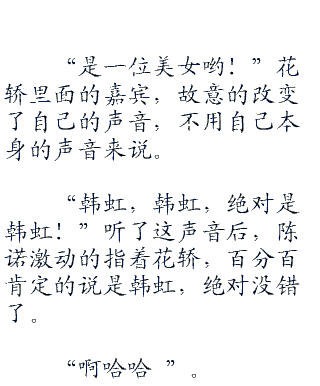 “是一位美女哟！”花
轿里面的嘉宾，故意的改变
了自己的声音，不用自己本
身的声音来说。
“韩虹，韩虹，绝对是
韩虹！”听了这声音后，陈
诺激动的指着花轿，百分百
肯定的说是韩虹，绝对没错
了。
“啊哈哈 ”。